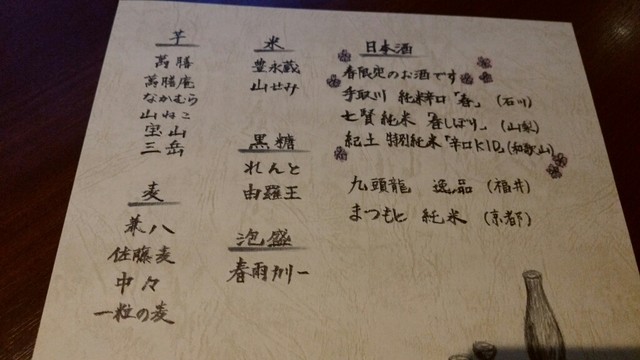 芋
萬膳
萬膳庵
なかむら
山ねこ
宝山
三岳
麦
兼八
佐藤麦
中々
一粒の麦
米
豊永蔵
山せみ
黒糖
れんと
由羅王
泡盛
春雨カリー
日本酒
春限定のお酒です
手取川 純米辛口「春」(石川)
七賢 純米「春しぼり」(山梨)
紀土 特別純米「辛口KID」(和歌山)
九頭龍 逸品 (福井)
まつもと 純米 (京都)